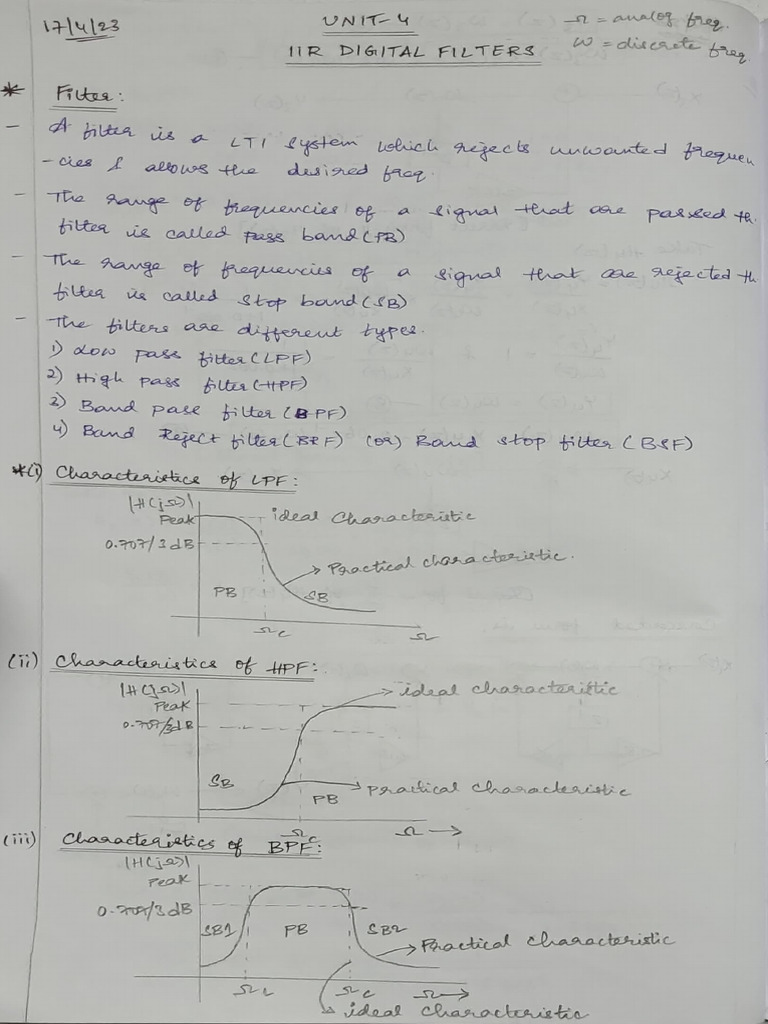 17/4/23
UNIT-4
Ω = analog freq.
IIR DIGITAL FILTERS
ω = discrete freq.
* Filter:
- A filter is a LTI system which rejects unwanted frequen
-cies & allows the desired freq.
- The range of frequencies of a signal that are passed th.
filter is called pass band (PB)
- The range of frequencies of a signal that are rejected th
filter is called stop band (SB)
- The filters are different types.
1) Low pass filter (LPF)
2) High pass filter (HPF)
3) Band pass filter (BPF)
4) Band Reject filter (BRF) (or) Band stop filter (BSF)
*(i) Characteristics of LPF:
|H(jΩ)|
Peak
ideal characteristic
0.707/3dB
Practical characteristic.
PB
SB
Ωc
Ω
(ii) Characteristics of HPF:
|H(jΩ)|
Peak
ideal characteristic
0.707/3dB
SB
PB
practical characteristic
Ωc
Ω →
(iii) Characteristics of BPF:
|H(jΩ)|
Peak
0.707/3dB
SB1
PB
SB2
Practical characteristic
Ωc
Ω →
ideal characteristic